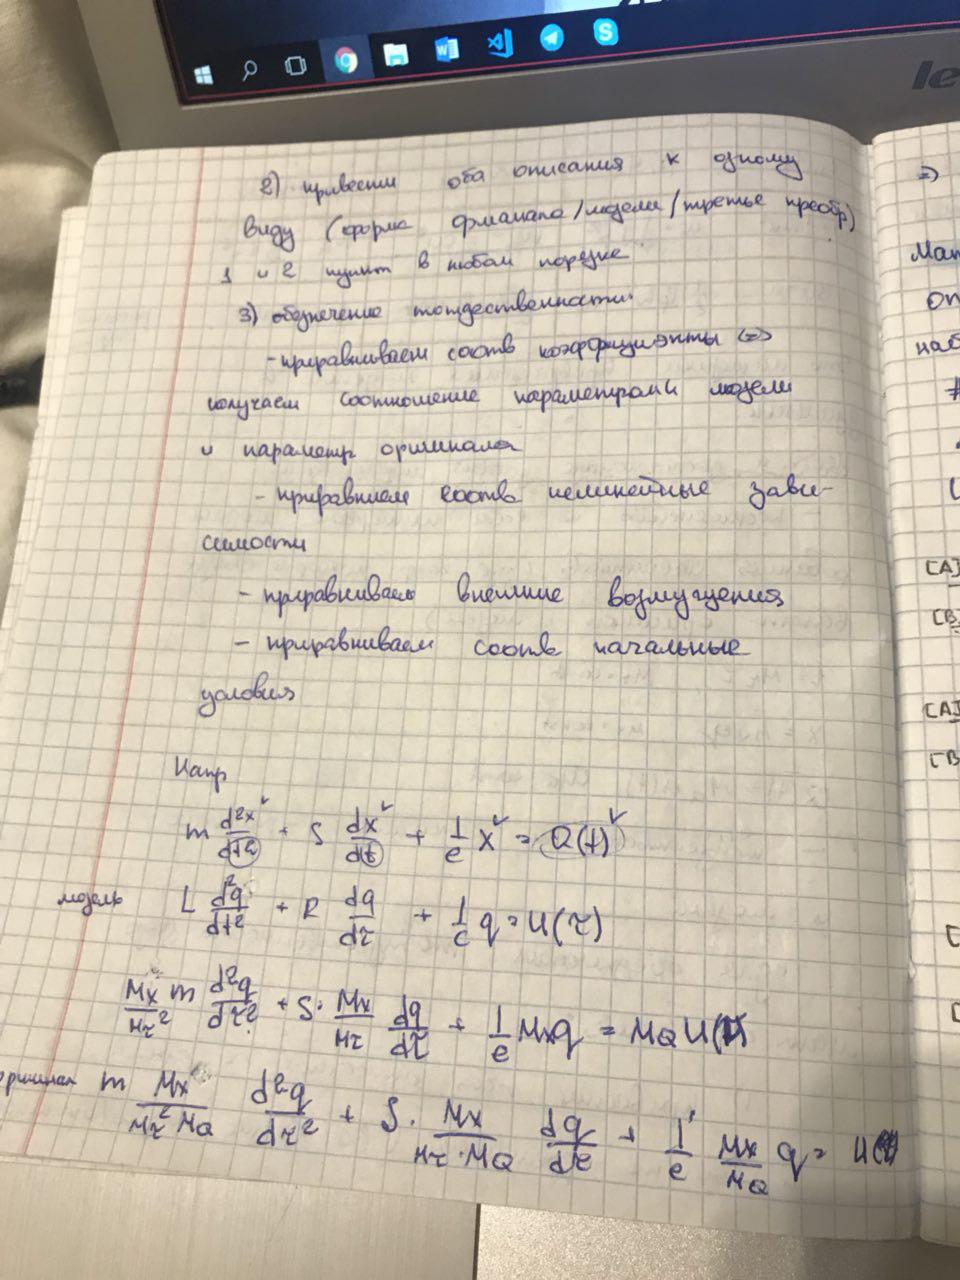 2) привести оба описания к одному
виду (форма оригинала/модели/третье преобр)
1 и 2 пункт в любом порядке
3) обозначение тождественности:
- приравниваем соотв коэффициэнты (=)
получаем соотношение параметрами модели
и параметр оригинала
- приравнием соотв нелинейные зави-
симости
- приравниваем внешние возмущения
- приравниваем соотв начальные
условия
Напр
m d²x/dt² + S dx/dt + 1/e x = Q(t)
модель L d²q/dτ² + R dq/dτ + 1/c q = U(τ)
Mx/Mτ² m d²q/dτ² + S · Mx/Mτ dq/dτ + 1/e Mx q = MQ U(
оригинал m Mx/Mτ² MQ d²q/dτ² + S · Mx/Mτ · MQ dq/dτ + 1/e Mx/MQ q = U(
le
=)
Мат
оп
наб
#
[A]
[B]
[A]
[B